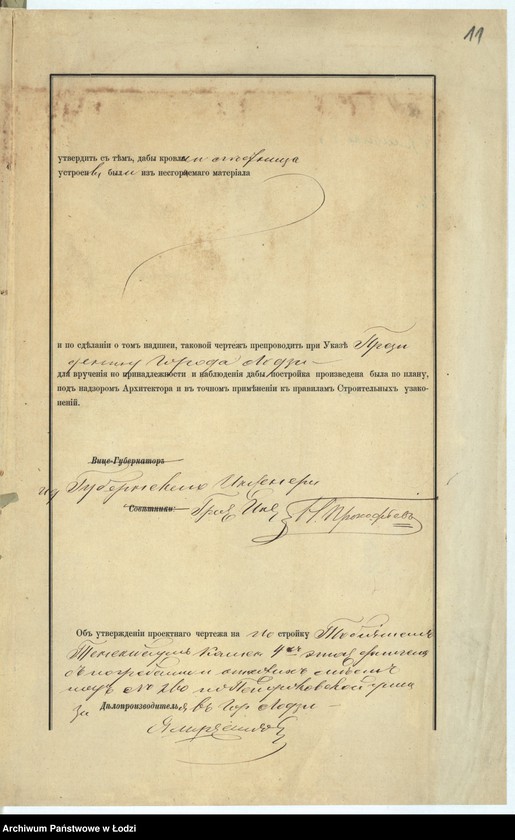 11
утвердить съ тѣмъ, дабы кровля и лѣстница
устроены были изъ несгораемаго матеріала
и по сдѣланіи о томъ надписи, таковой чертежъ препроводить при Указѣ Прези
денту Города Лодзи
для врученія по принадлежности и наблюденія дабы постройка произведена была по плану,
подъ надзоромъ Архитектора и въ точномъ примѣненіи къ правиламъ Строительныхъ узако-
неній.
Вице-Губернаторъ
Губернскаго Инженера
Совѣтники: Граж. Инж. Прокофьевъ
Объ утвержденіи проектнаго чертежа на по стройку
4 этаж.
съ погребами
подъ № 260 по Петроковской улицѣ
за Дѣлопроизводителя въ Гор. Лодзи
Archiwum Państwowe w Łodzi